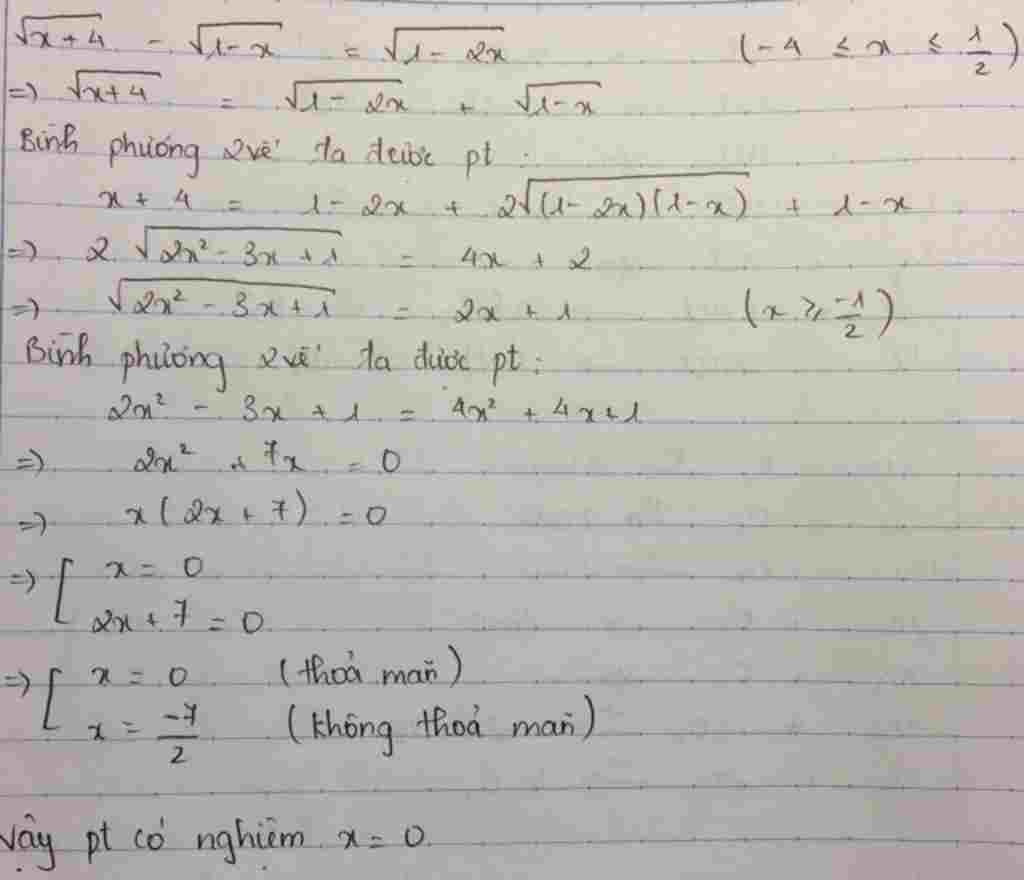 √(x+4) - √(1-x) = √(1-2x) (-4 ≤ x ≤ 1/2)
=> √(x+4) = √(1-2x) + √(1-x)
Bình phương 2 vế ta được pt :
x + 4 = 1 - 2x + 2√((1-2x)(1-x)) + 1 - x
=> 2.√(2x² - 3x + 1) = 4x + 2
=> √(2x² - 3x + 1) = 2x + 1 (x ≥ -1/2)
Bình phương 2 vế ta được pt :
2x² - 3x + 1 = 4x² + 4x + 1
=> 2x² + 7x = 0
=> x(2x + 7) = 0
=> [ x = 0
2x + 7 = 0
=> [ x = 0 (thoả mãn)
x = -7/2 (không thoả mãn)
Vậy pt có nghiệm x = 0.